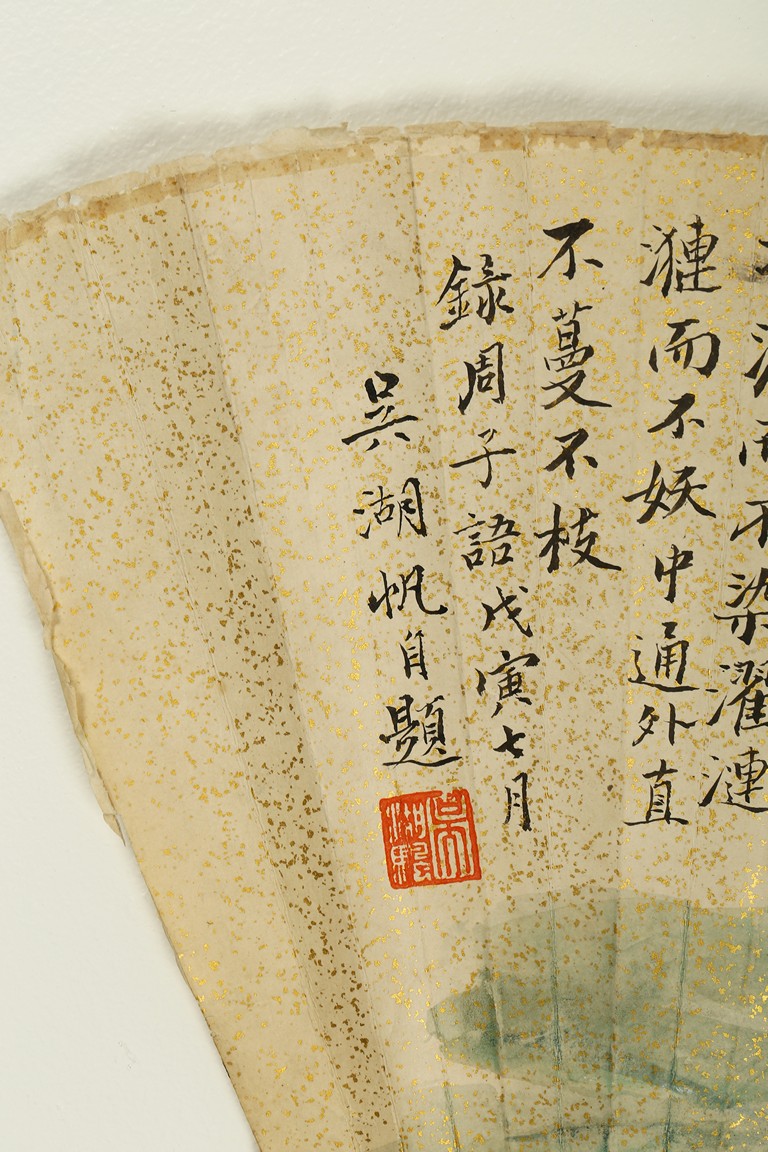 泥而不染濯漣
漣而不妖中通外直
不蔓不枝
錄周子語戊寅七月
吳湖帆自題
吳湖颿